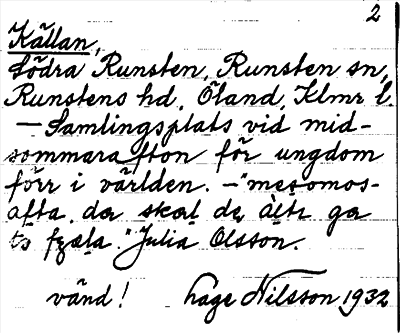 2
Källan,
Södra Runsten, Runsten sn,
Runstens hd, Öland, Klmr l.
— Samlingsplats vid mid-
sommarafton för ungdom
förr i världen. — "mesomos-
afta. da skal de altr ga
te." Julia Olsson.
vänd! Hage Nilsson 1932